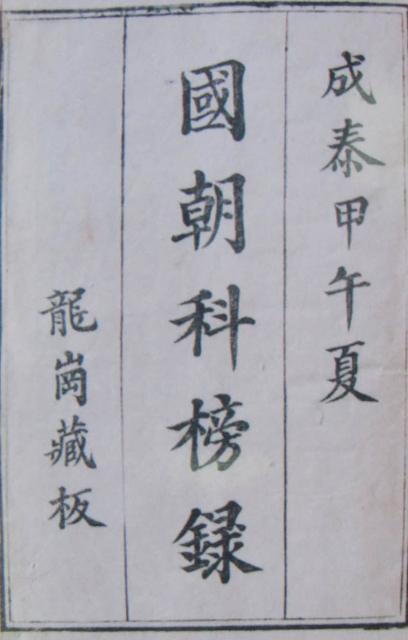 成泰甲午夏
國朝科榜錄
龍崗藏板